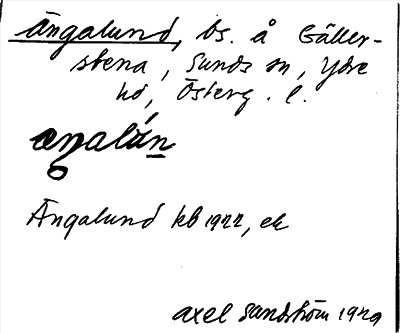 Ängalund, bs. å Gäller-
stena, Sunds sn, Ydre
hd, Österg. l.
Ängalund kb 1922, ek
Axel Sandström 1929